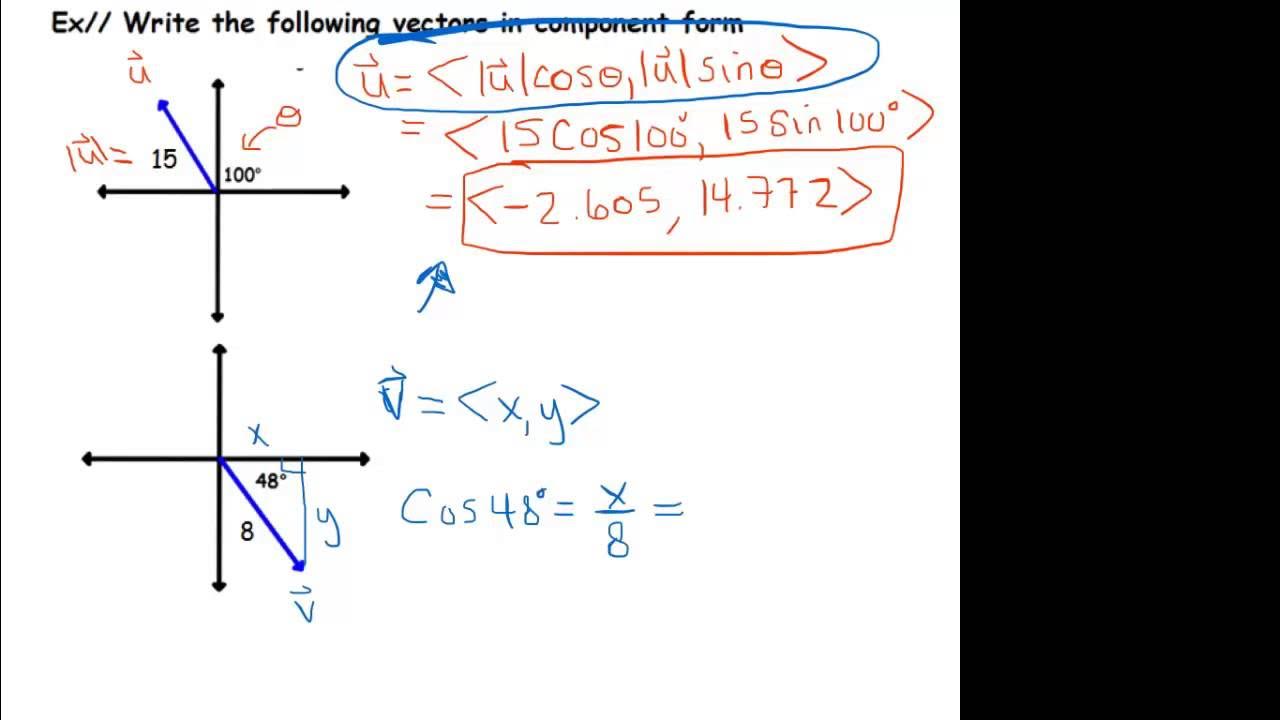 Ex// Write the following vectors in component form
u⃗
u⃗ = <|u⃗|cosθ, |u⃗|sinθ>
θ
|u⃗| = 15
100°
= <15cos100°, 15sin100°>
= <-2.605, 14.772>
v⃗ = <x, y>
x
48°
8
y
v⃗
Cos48° = x/8 =